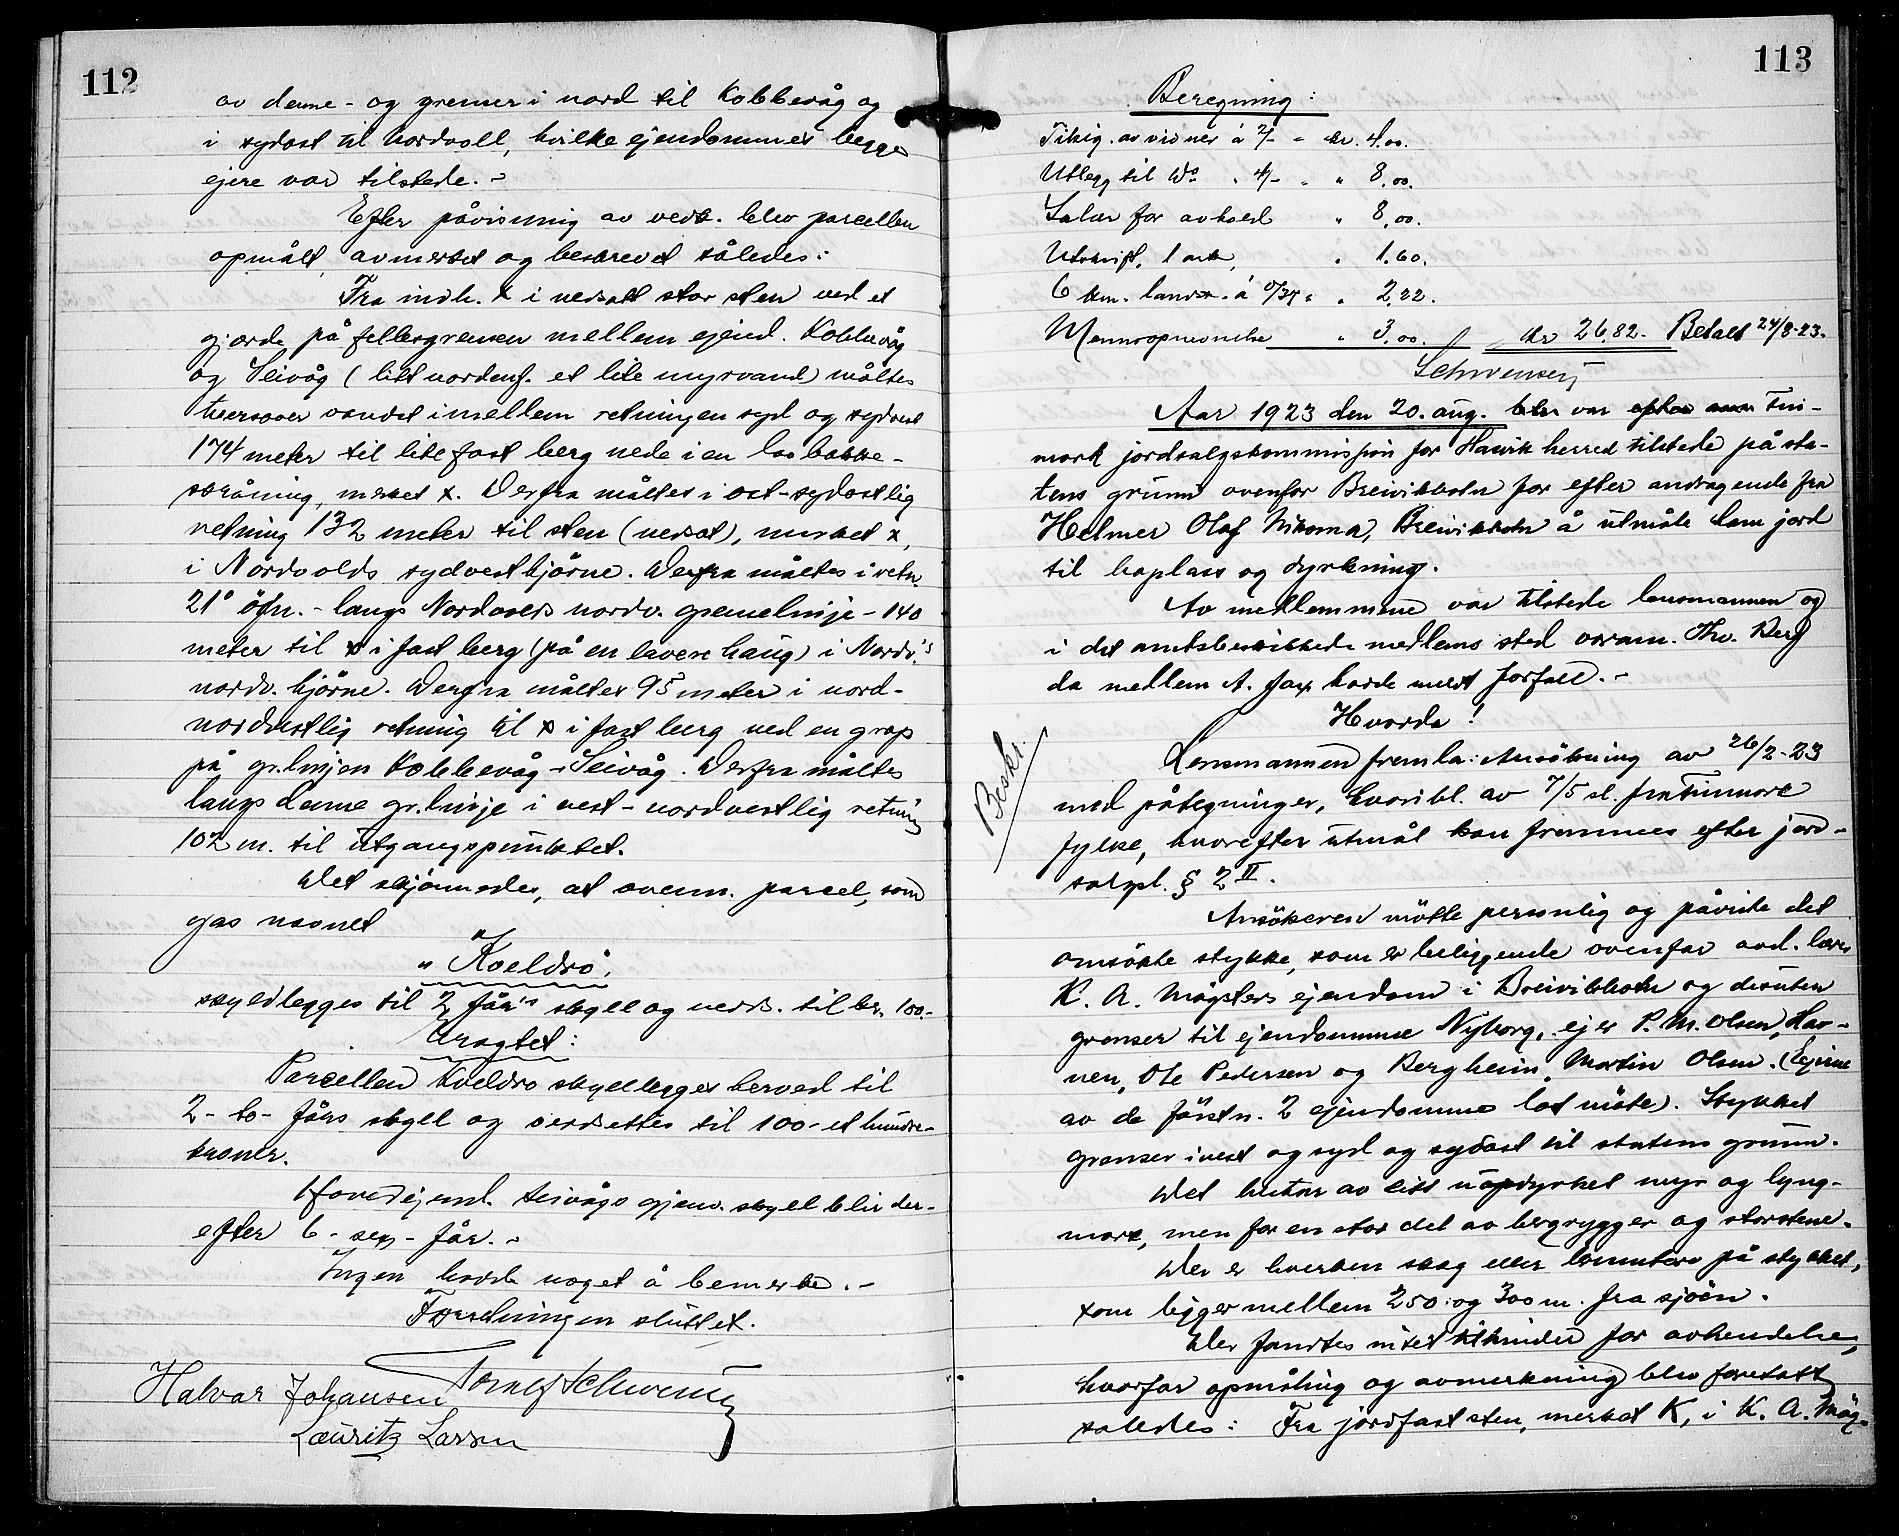 112
av denne - og grenser i nord til Kobbevåg og
i sydost til Nordvoll, hvilke ejendommes begges
ejere var tilstede. -
Efter påvisning av vedk. blev parcellen
opmålt, avmerket og beskrevet således:
Fra indh. x i nedsatt stor sten ved et
gjærde på fellesgrensen mellem ejend. Kobbevåg
og Seivåg (litt nordenf. et lite myrvand) måltes
tversover vandet imellem retningen syd og sydvest
174 meter til lite fast berg nede i en bakke-
skråning, merket x. Derfra måltes i ost-sydostlig
retning 132 meter til sten (nedsat), merket x,
i Nordvolds sydvesthjörne. Derfra måltes i retn.
21° öfn. - langs Nordvolls nordv. grenselinje - 140
meter til x i fast berg (på en lavere haug) i Nordv.'s
nordv. hjörne. Derfra måltes 95 meter i nord-
nordvestlig retning til x i fast berg ved en grop
på gr.linjen Kobbevåg - Seivåg. Derfra måltes
langs denne gr.linje i vest-nordvestlig retning
102 m. til utgangspunktet.
Det skjönnedes, at ovenn. parcel, som
gas navnet
"Kveldro",
skyldlegges til 2 får's skyll og verds. til kr. 100.-
Uragtet:
Parcellen Kveldro skyldlegges herved til
2 - to - fårs skyll og verdsettes til 100 - et hundre-
kroner.
Hovedejend. Seivågs gjenv. skyll blir der-
efter 6 - sex - får. -
Ingen hadde noget å bemerke. -
Forretningen sluttet.
Halvar Johansen
Lauritz Larsen
113
Beregning:
Tilsig. av vidner à 2/- - kr. 4.00.
Utlegg til Do " 4/- " " 8,00.
Salær for avhold " 8,00.
Utskrift, 1 ark, " 1.60.
6 km. landsk. à 0/37 " " 2,22.
Mennsopnevnelse " 3,00. kr 26,82. Betalt 24/8-23.
Schwensen
Aar 1923 den 20. aug. var Fin-
mark jordsalgskommissjon for Hasvik herred tilstede på sta-
tens grunn ovenfor Breivikbotn for efter andragende fra
Helmer Olaf Nikoma, Breivikbotn å utmåle ham jord
til boplass og dyrkning.
Av medlemmene var tilstede lensmannen og
i det amtsbeskikkede medlems sted varam. Thv. Berg
da medlem A. Jax hadde meldt forfall. -
Hvorda!
Beskr.
Lensmannen fremla: Ansökning av 26/2-23
med påtegninger, hvoribl. av 7/5 d. fra Finmark
fylke, hvorefter utmål kan fremmes efter jord-
salgsl. § 2 II.
Ansökeren mötte personlig og påviste det
omsökte stykke, som er beliggende ovenfor avd. lærer
K. A. Mögsters ejendom i Breivikbotn og desuten
grenser til ejendommene Nyborg, ejer P. M. Olsen, Hav-
nen, Ole Pedersen og Bergheim, Martin Olsen. (Ejerne
av de förstn. 2 ejendomme lot möte). Stykket
grenser i vest og syd og sydost til statens grunn.
Det består av litt uopdyrket myr og lyng-
mark, men for en stor del av bergrygger og storstene.
Der er hverken skog eller brenntorv på stykket,
som ligger mellem 250 og 300 m. fra sjöen.
Der fandtes intet til hinder for avhendelse,
hvorfor opmåling og avmerkning blev foretatt
således: Fra jordfast sten, merket K, i K. A. Mög-